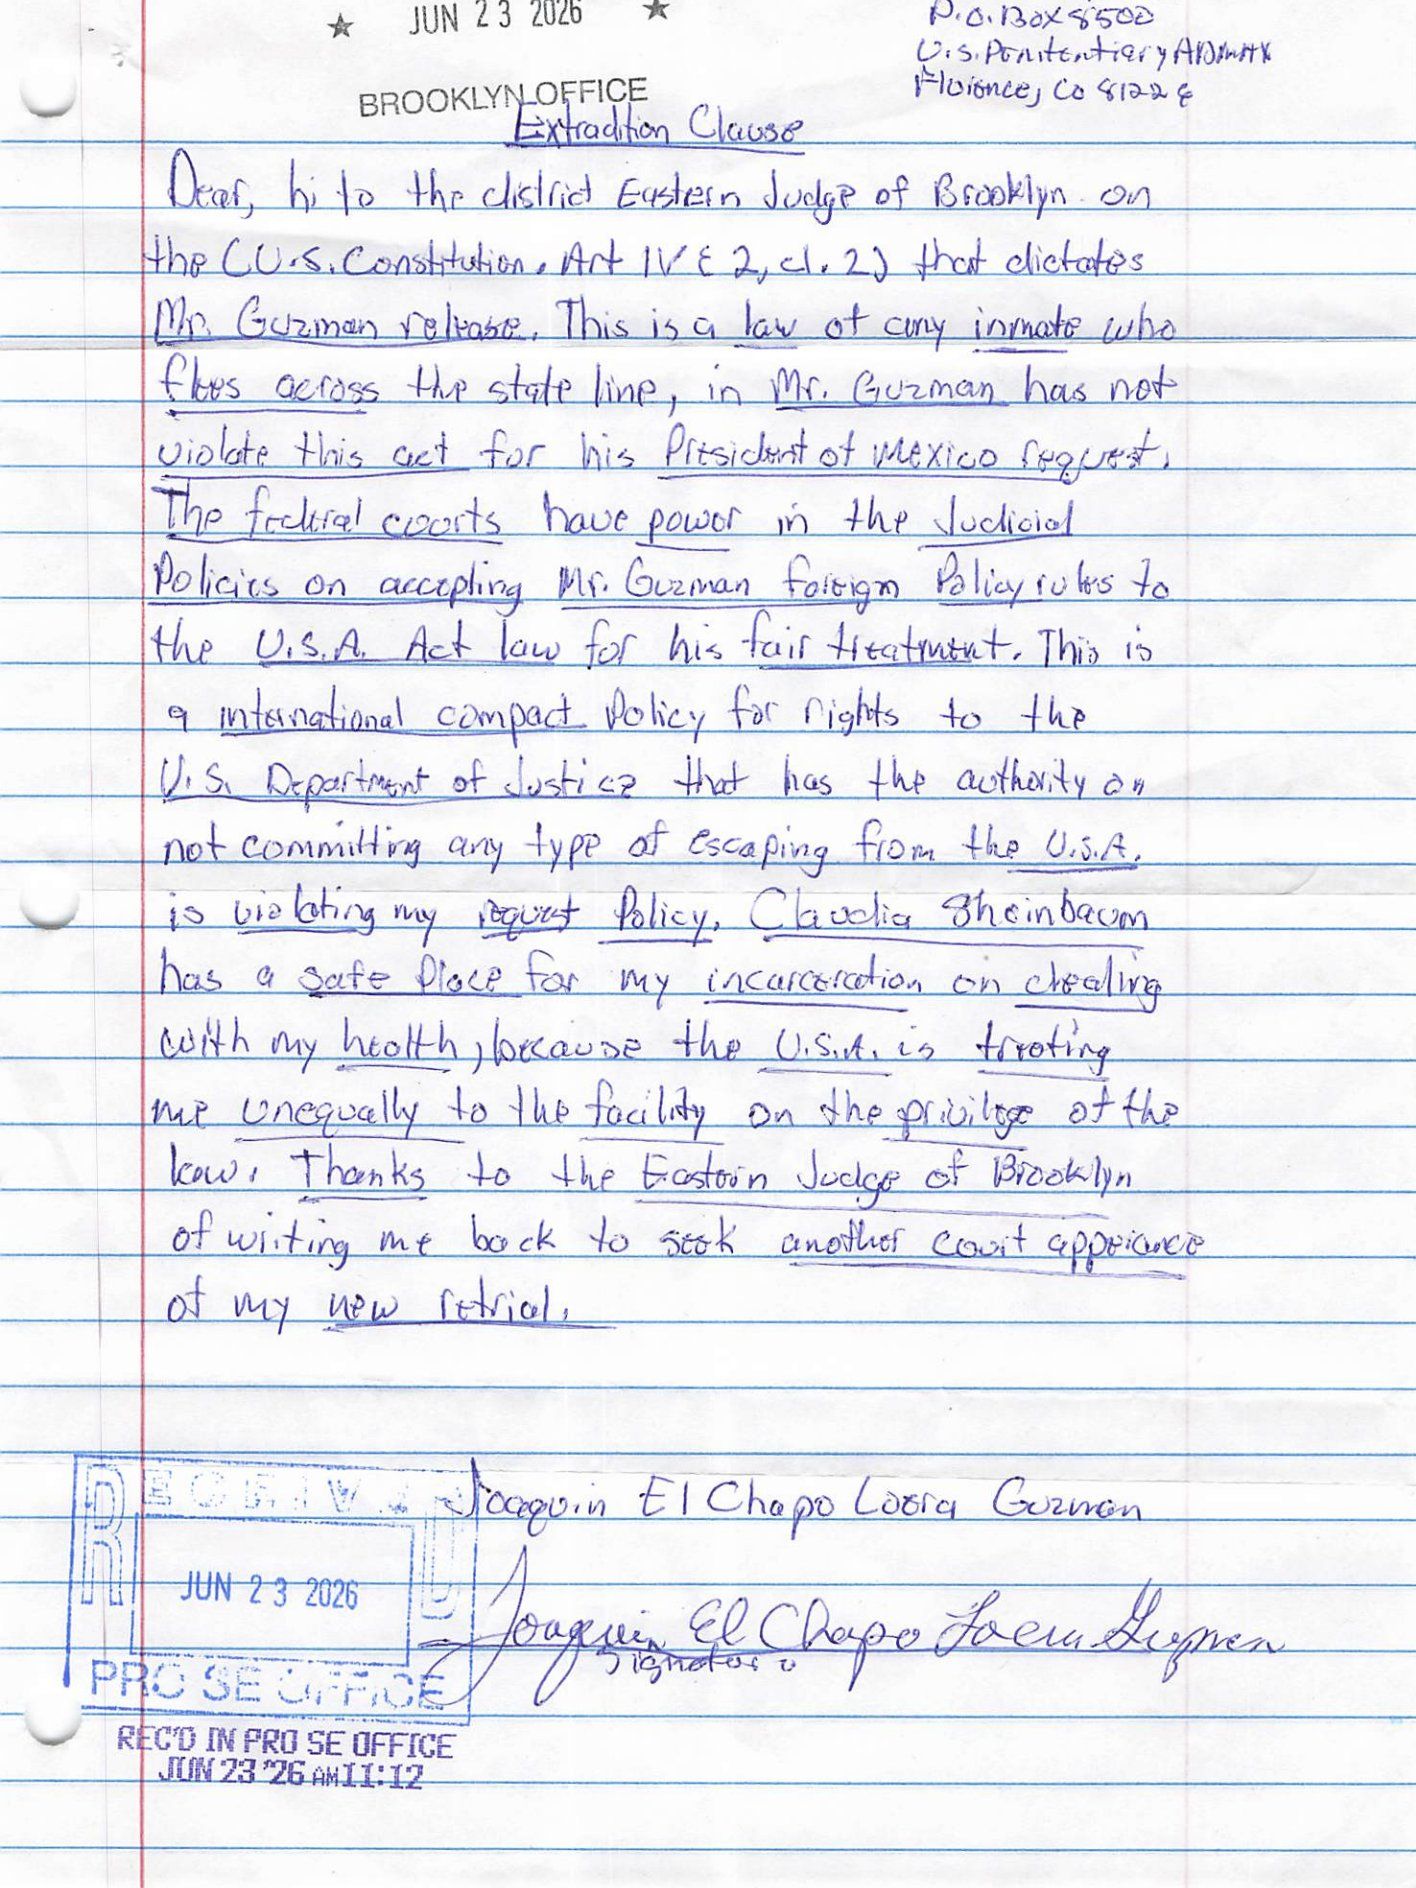 JUN 23 2026
P.O. Box 8500
U.S. Penitentiary ADMAX
Florence, Co 81226
BROOKLYN OFFICE
Extradition Clause
Dear, hi to the district Eastern Judge of Brooklyn on
the (U.S. Constitution. Art IV & 2, cl. 2) that dictates
Mr. Guzman release. This is a law of any inmate who
flees across the state line, in Mr. Guzman has not
violate this act for his President of Mexico request.
The federal courts have power in the Judicial
Policies on accepting Mr. Guzman foreign Policy rules to
the U.S.A. Act law for his fair treatment. This is
a international compact Policy for rights to the
U.S. Department of Justice that has the authority on
not committing any type of escaping from the U.S.A.
is violating my request Policy. Claudia Sheinbaum
has a safe Place for my incarceration on dealing
with my health, because the U.S.A. is treating
me unequally to the facility on the privilege of the
law. Thanks to the Eastern Judge of Brooklyn
of writing me back to seek another court apperance
of my new retrial.
RECEIVED
Joaquin El Chapo Loera Guzman
JUN 23 2026
Joaquin El Chapo Loera Guzman
Signature
PRO SE OFFICE
REC'D IN PRO SE OFFICE
JUN 23 '26 AM 11:12